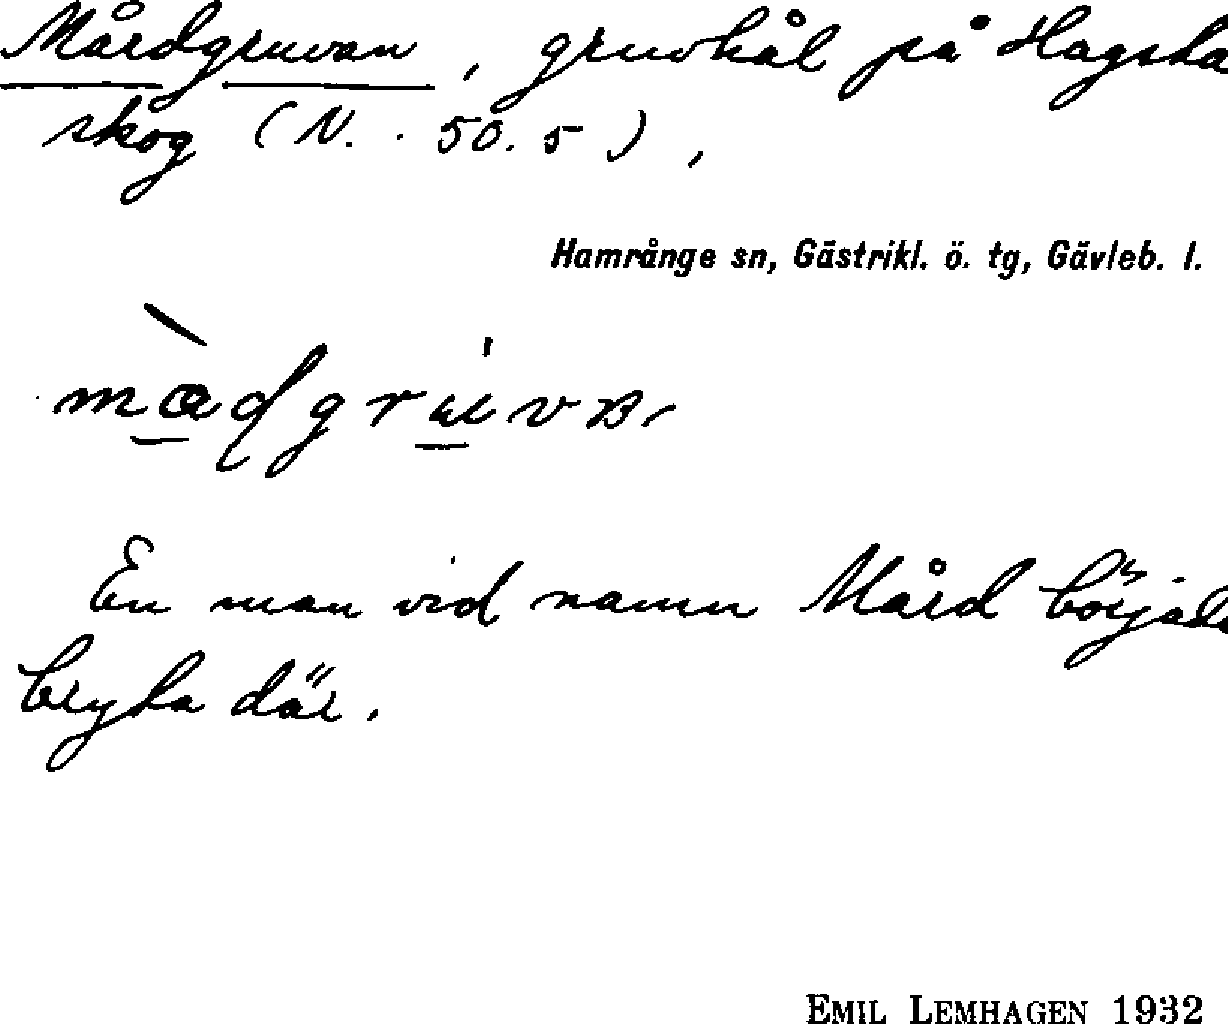 Mårdgruvan, gruvhål på Hagsta
skog (N. · 50. 5),
Hamrånge sn, Gästrikl. ö. tg, Gävleb. l.
En man vid namn Mård började
bryta där.
EMIL LEMHAGEN 1932